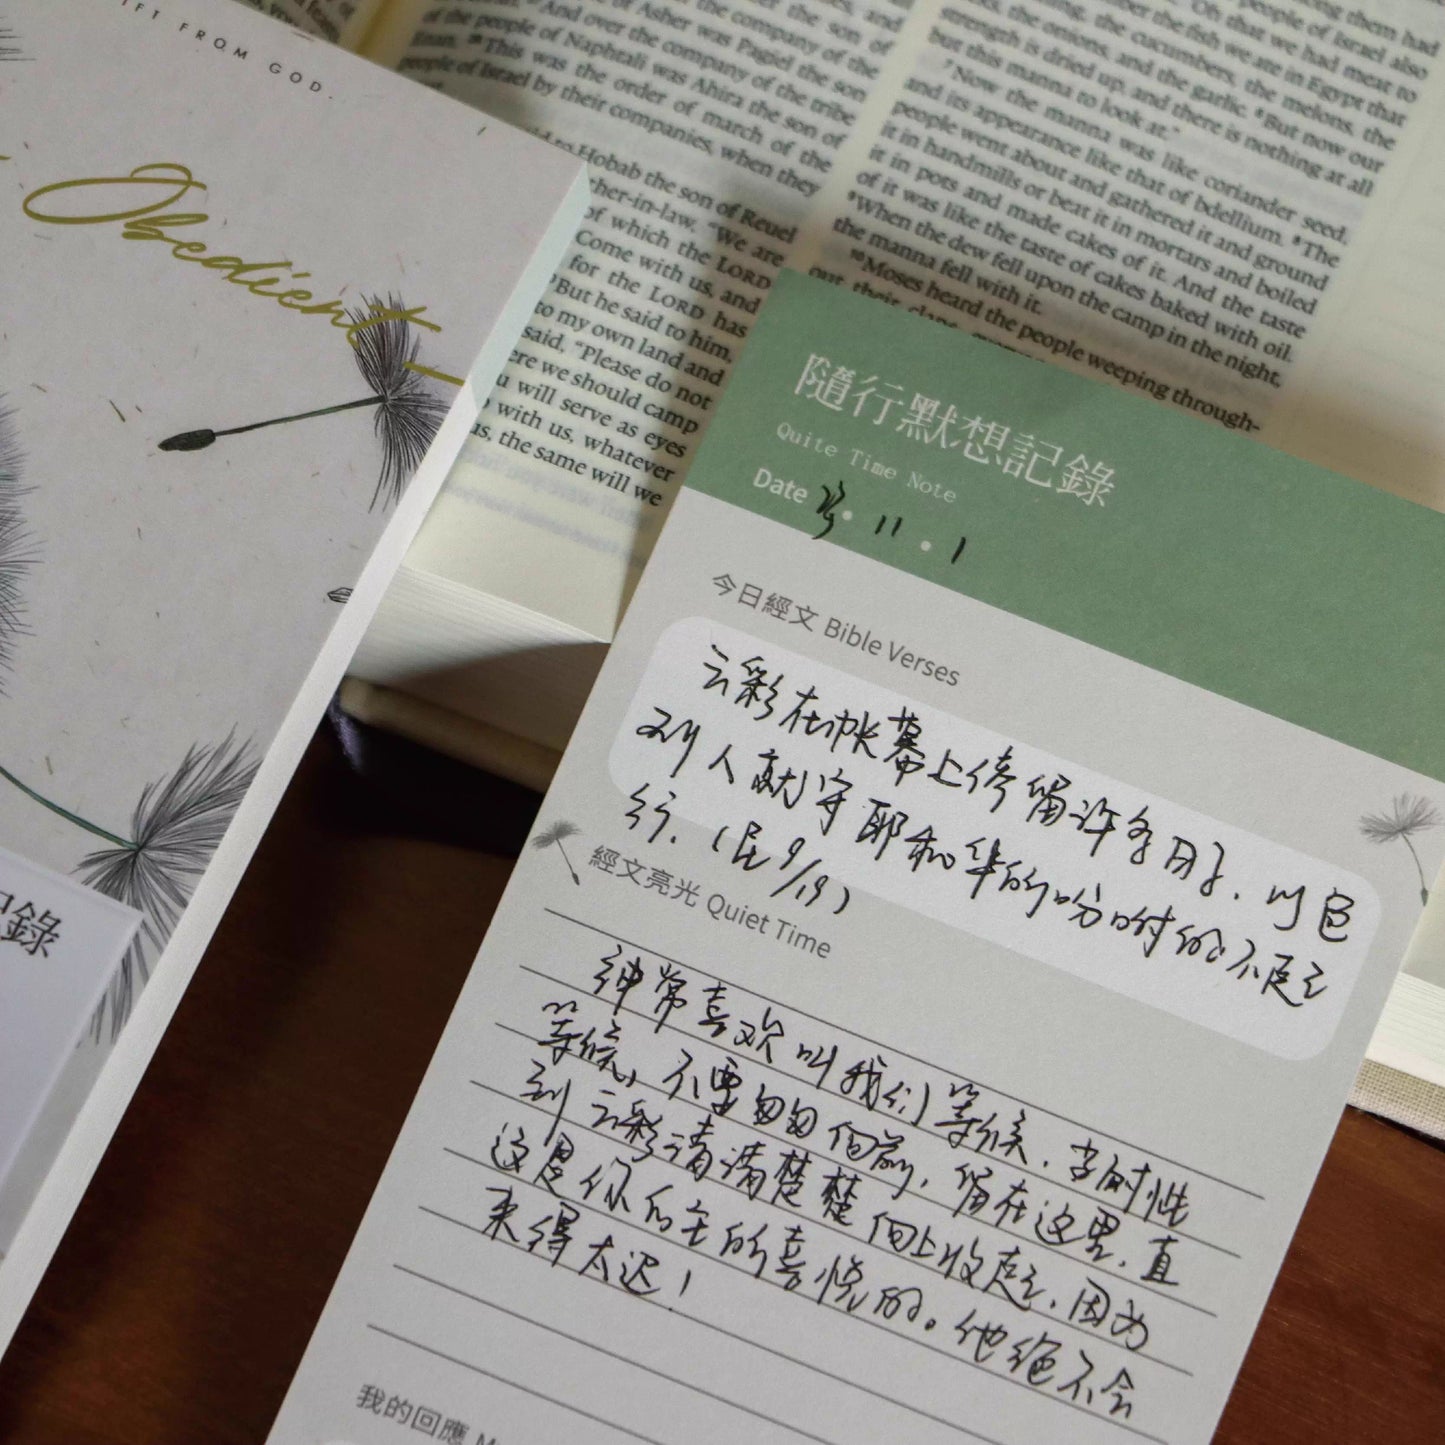 IFT FROM GOD.
Obedient
記錄
of Asher was Pagiel the son of
And over the company of the
people of Naphtali was Ahira the son of
Enan. This was the order of march of the
people of Israel by their companies, when they
to Hobab the son of Reuel
ther-in-law, "We are
of which the LORD
Come with us, and
for the LORD has
But he said to him,
to my own land and
said, "Please do not
ere we should camp
u will serve as eyes
with us, whatever
us, the same will we
had
people of Israel also
"Oh that we had meat to
the fish we ate in Egypt that
the cucumbers, the melons, the
the onions, and the garlic. 6But now our
strength is dried up, and there is nothing at all
but this manna to look at."
7Now the manna was like coriander seed,
and its appearance like that of bdellium. 8The
people went about and gathered it and ground
it in handmills or beat it in mortars and boiled
it in pots and made cakes of it. And the taste
of it was like the taste of cakes baked with oil.
9When the dew fell upon the camp in the night,
the manna fell with it.
10Moses heard the people weeping through-
out their clans,
隨行默想記錄
Quite Time Note
Date 23. 11. 1
今日經文 Bible Verses
云彩在帐幕上停留许多日子，以色
列人就守耶和华的吩咐的不起
行.（民9/19）
經文亮光 Quiet Time
神常喜欢叫我们等候，
等候，不要匆匆向前，留在这里，直
到云彩清清楚楚向上收起，因为
这是你的主的喜悦的。他绝不会
来得太迟！
我的回應